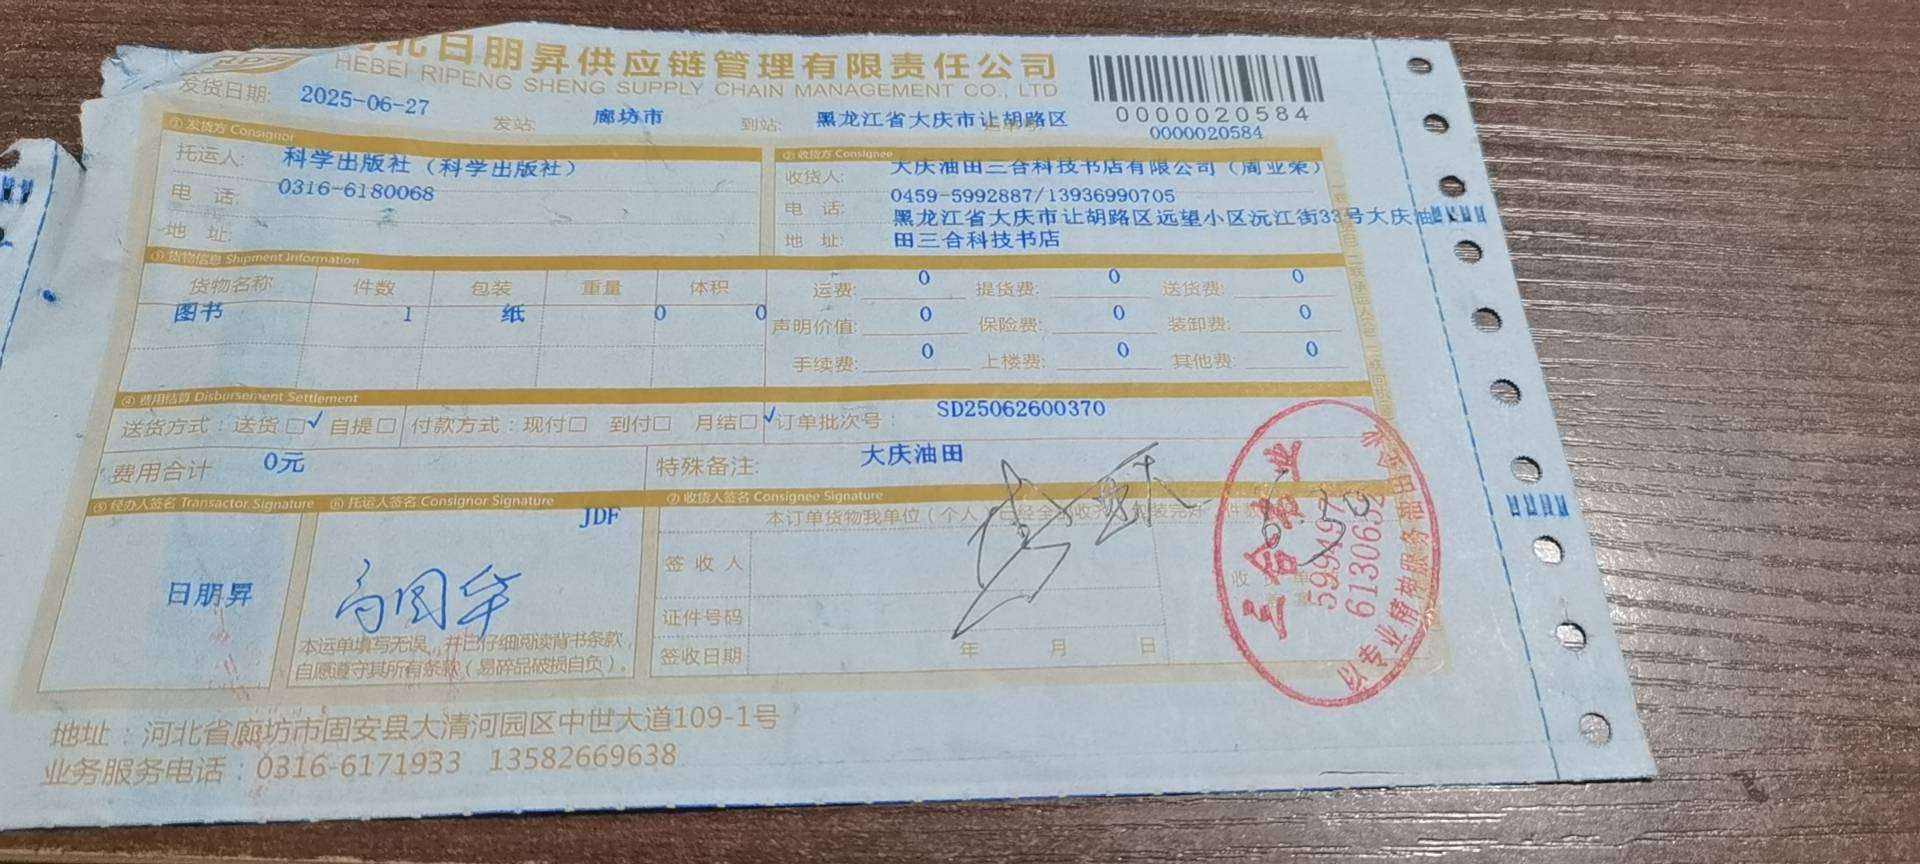 北日朋昇供应链管理有限责任公司
HEBEI RIPENG SHENG SUPPLY CHAIN MANAGEMENT CO., LTD
0000020584
发货日期: 2025-06-27 发站: 廊坊市 到站: 黑龙江省大庆市让胡路区 0000020584
① 发货方 Consignor
托运人: 科学出版社（科学出版社）
电 话: 0316-6180068
地 址:
② 收货方 Consignee
收货人: 大庆油田三合科技书店有限公司（周业荣）
电 话: 0459-5992887/13936990705
地 址: 黑龙江省大庆市让胡路区远望小区沅江街33号大庆油
田三合科技书店
③ 货物信息 Shipment Information
货物名称 件数 包装 重量 体积
图书 1 纸 0 0
运费: 0 提货费: 0 送货费: 0
声明价值: 0 保险费: 0 装卸费: 0
手续费: 0 上楼费: 0 其他费: 0
④ 费用结算 Disbursement Settlement
送货方式: 送货□✓ 自提□ 付款方式: 现付□ 到付□ 月结□✓ 订单批次号: SD25062600370
费用合计 0元 特殊备注: 大庆油田
⑤ 经办人签名 Transactor Signature
日朋昇
⑥ 托运人签名 Consignor Signature
JDF
本运单填写无误，并已仔细阅读背书条款，
自愿遵守其所有条款（易碎品破损自负）。
⑦ 收货人签名 Consignee Signature
本订单货物我单位（个人
签收人
证件号码
签收日期 年 月 日
三合书业
5994497
61330652
以专业精神服务油田企业
地址：河北省廊坊市固安县大清河园区中世大道109-1号
业务服务电话：0316-6171933 13582669638